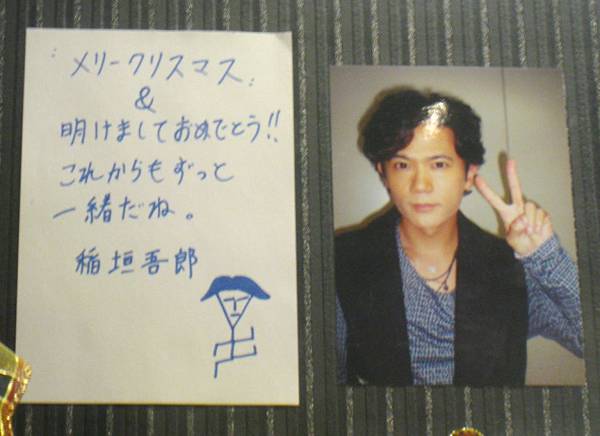 メリークリスマス
&
明けましておめでとう!!
これからもずっと
一緒だね。
稲垣吾郎